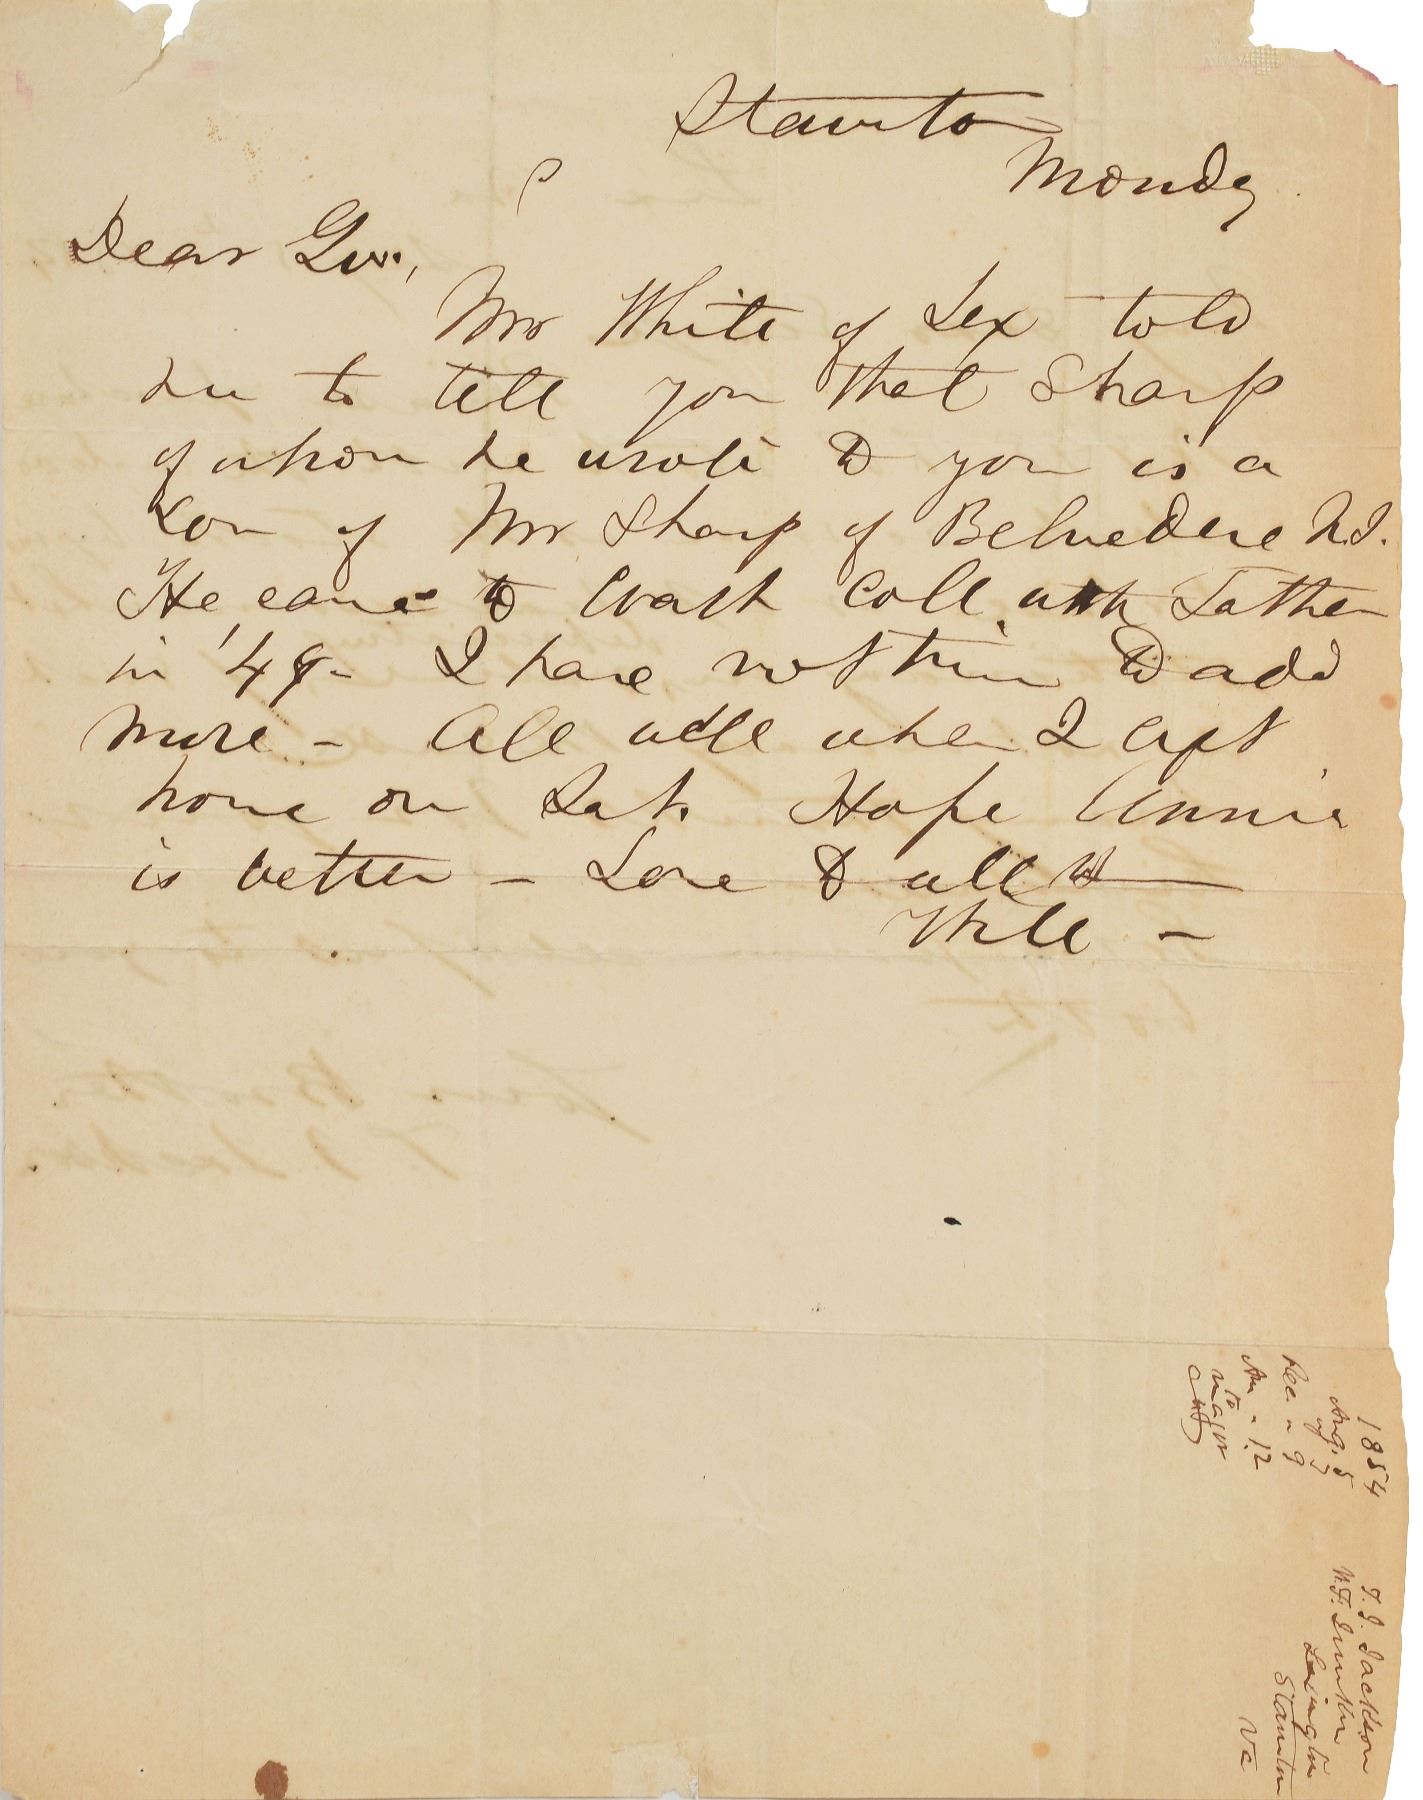 Staunto
Monday
Dear Geo.,
Mr White of Lex told
me to tell you that Sharp
of whom he wrote to you is a
Son of Mr Sharp of Belvedere N.J.
He came to Wash Coll. with Father
in '49 - I have nothin to add
more - All well when I left
home on Sat. Hope Annie
is better - Love to all
Will -
1854
Aug. 5
of 7
Rec. " 9
An - 12
to
major
T. J. Jackson
W. F. Junkin
Lexington
Staunton
Va